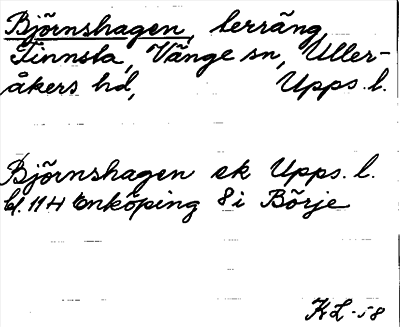 Björnshagen, lerräng,
Finnsta, Vänge sn, Uller-
åkers hd, Upps. l.
Björnshagen ek Upps. l.
bl. 114 Enköping 8 i Börje
KL -58